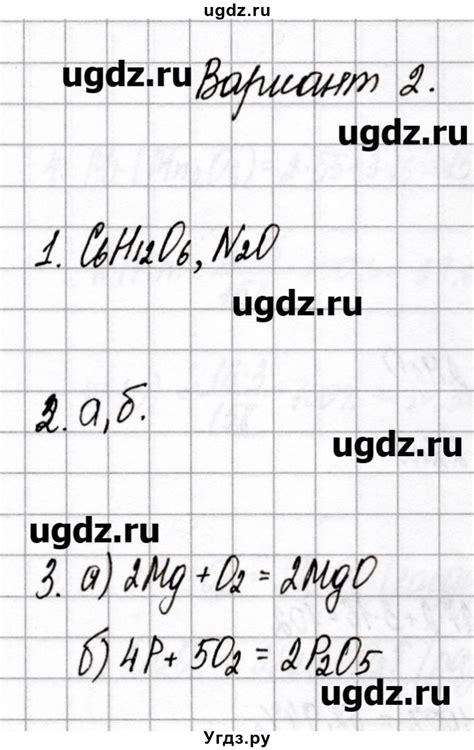 ugdz.ru
Вариант 2.
ugdz.ru
1. C6H12O6, N2O
ugdz.ru
2. а, б.
ugdz.ru
ugdz.ru
3. а) 2Mg + O2 = 2MgO
б) 4P + 5O2 = 2P2O5
ugdz.ru
Угдз.ру